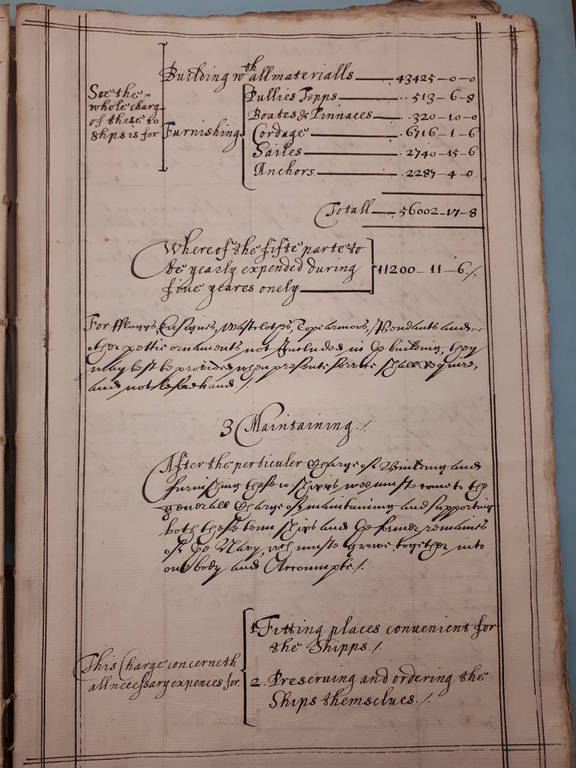 Soe the
whole charg
of these 10
ships is for
Building wth all materialls 43425-0-0
Furnishing
Pullies Topps 513-6-8
Boates & Pinnaces 320-10-0
Cordage 6716-1-6
Sailes 2740-15-6
Anchors 2287-4-0
Totall 56002-17-8
Whereof the fifte parte to
be yearly expended during
five yeares onely
11200-11-6
For fflaggs, Ensignes, Wastclothes, Topparmors, Pendants and
other pettie ornaments not Included in the building, they
may best be provided when presente service shall require,
and not beforehand /.
3 Maintaining /.
After the perticuler Charge of Building and
furnishing these 10 shipps, wee must come to the
generall Charge of maintaining and supporting
both these tenn ships and the former remaines
of the Navy, wch muste growe together into
one body and Accompte /.
This Charge concerneth
all necessary expences for
1 Fitting places convenient for
the Shipps /.
2. Preserving and ordering the
Ships themselves /.